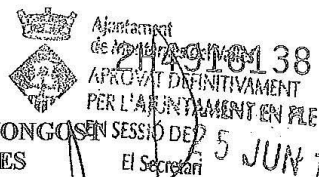 Ajuntament
de
2H4910138
APROVAT DEFINITIVAMENT
PER L'AJUNTAMENT EN PLE
EN SESSIÓ DE 25 JUN
ES El Secretari